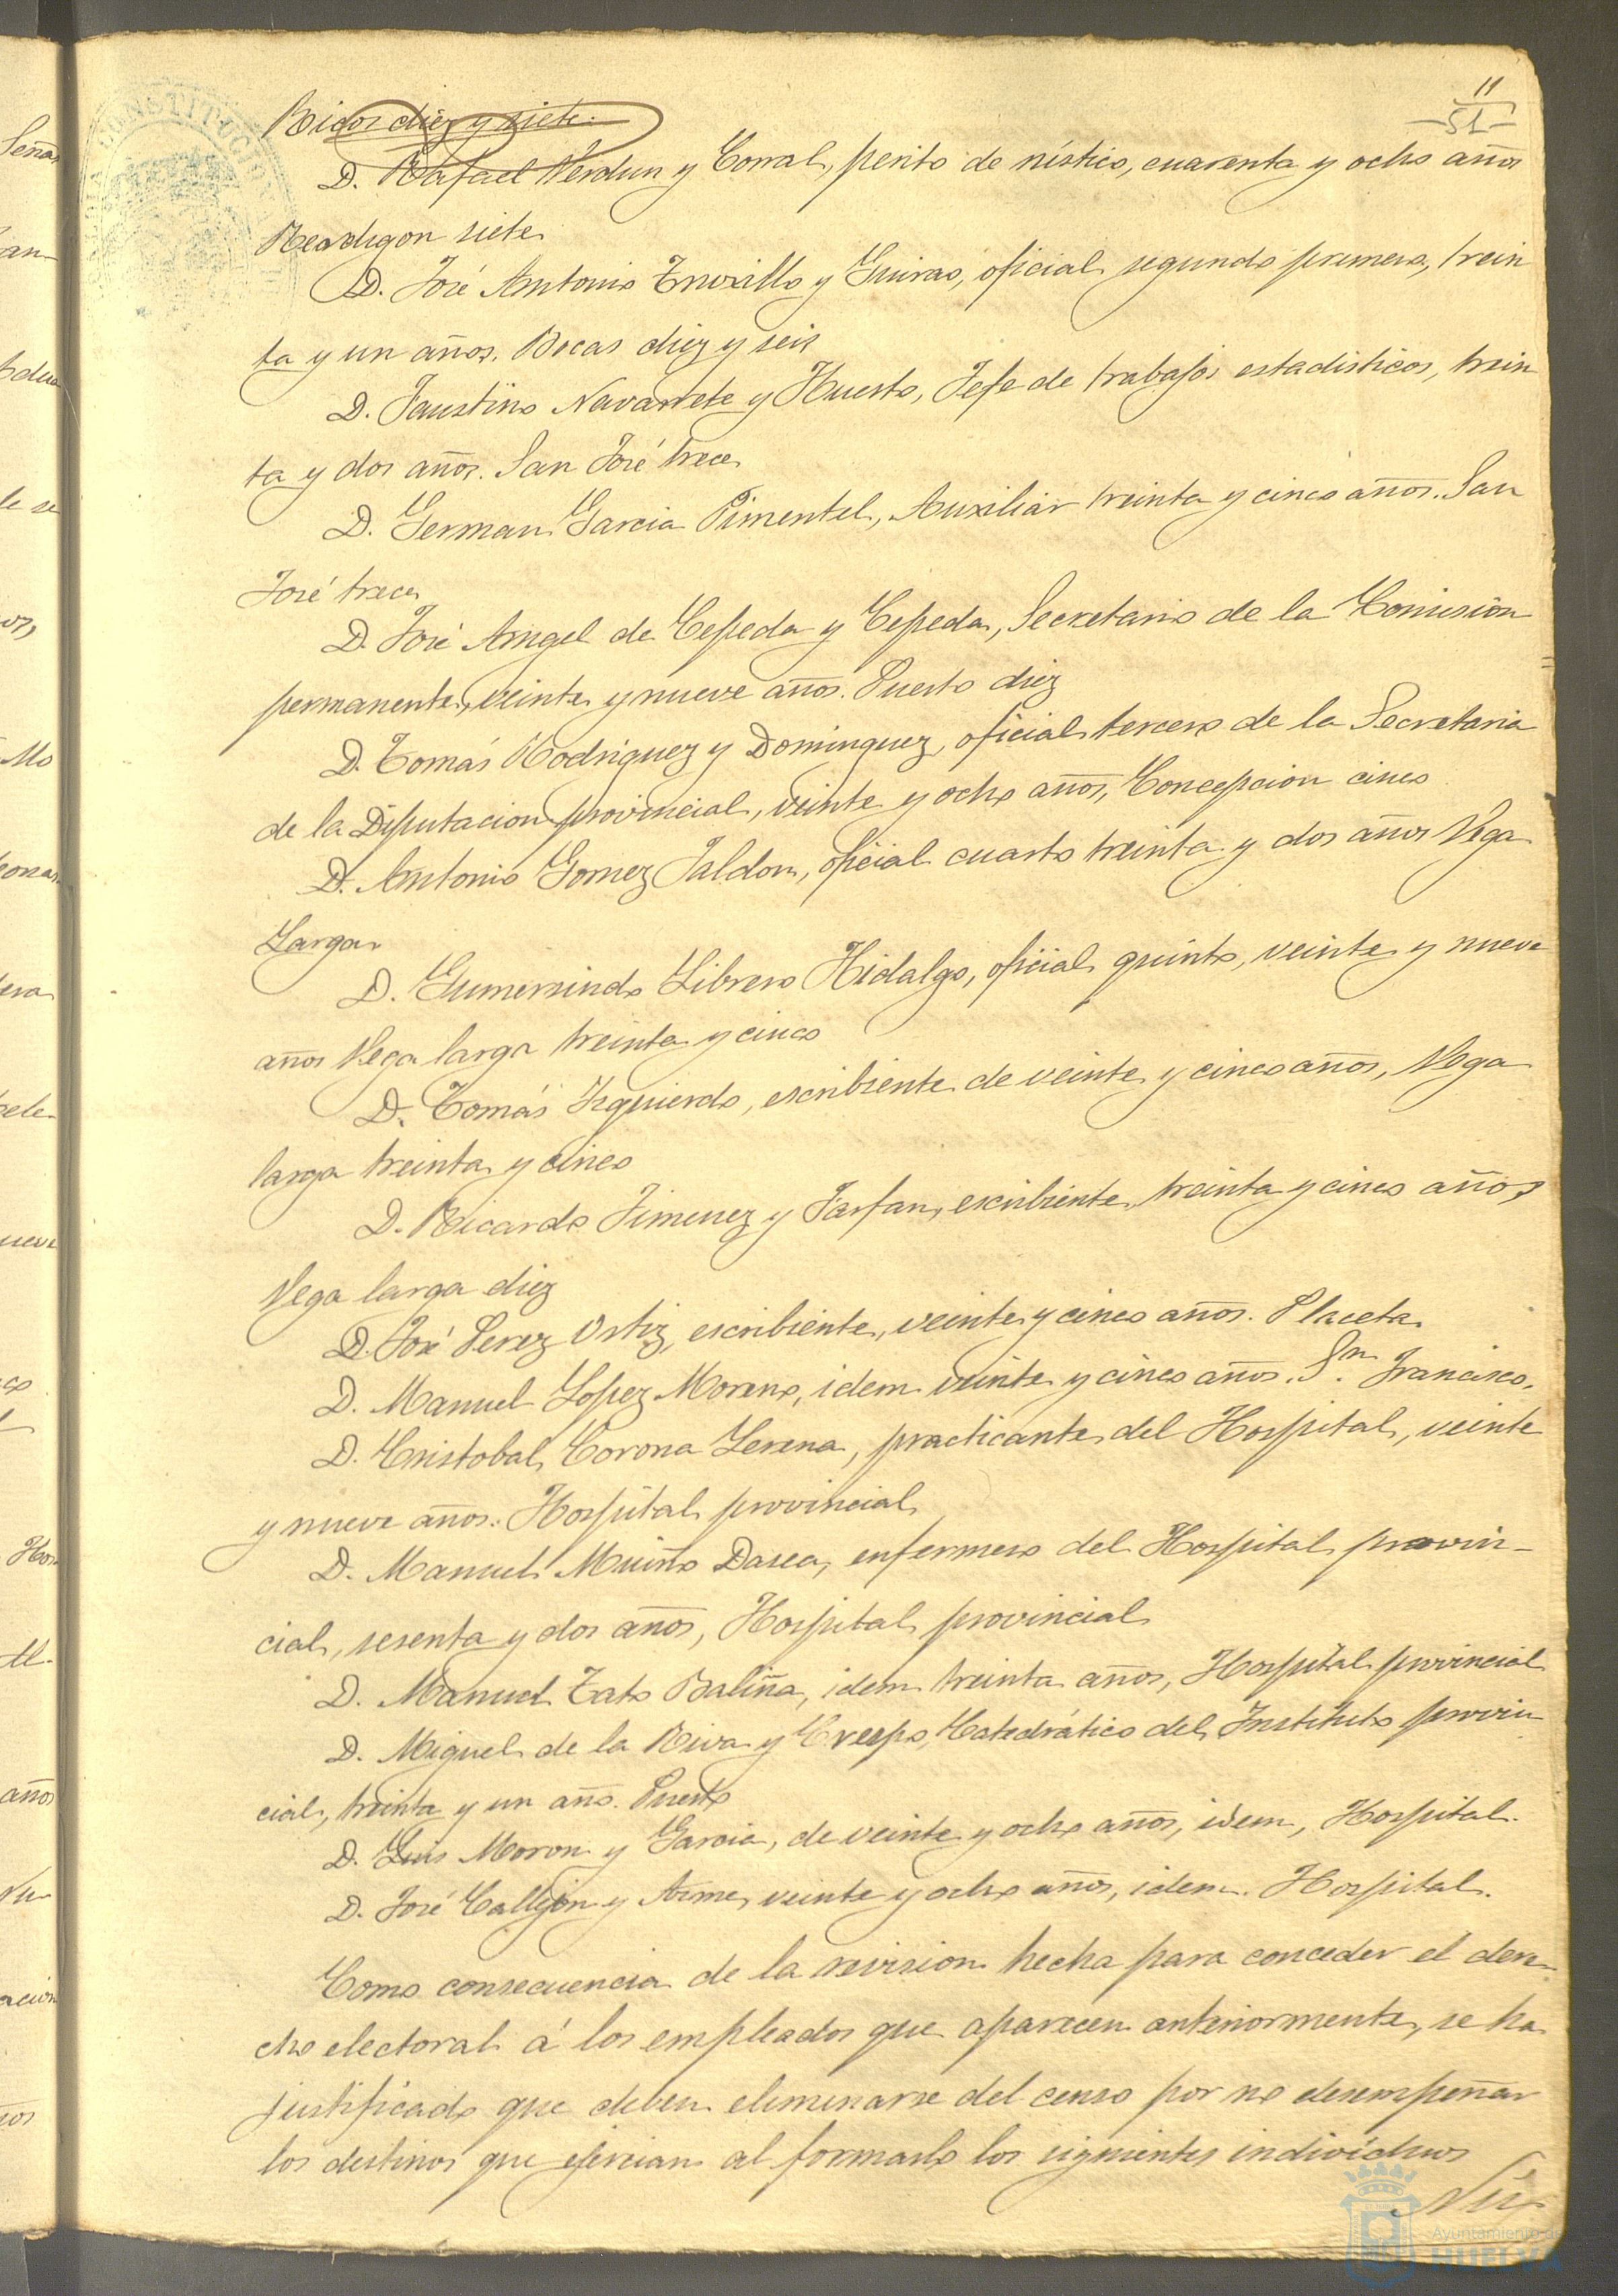 11
51
Ricos diez y siete.
D. Rafael Verdun y Corral, perito de rústico, cuarenta y ocho años
siete
D. José Antonio Truxillo y Guirao, oficial segundo primero, trein
ta y un años. Bocas diez y seis
D. Faustino Navarrete y Huerto, Jefe de trabajos estadisticos, trein
ta y dos años. San José trece
D. German Garcia Pimentel, Auxiliar treinta y cinco años. San
José trece
D. José Angel de Cepeda y Cepeda, Secretario de la Comision
permanente, veinte y nueve años. Puerto diez
D. Tomás Rodriguez y Dominguez, oficial tercero de la Secretaria
de la Diputacion provincial, veinte y ocho años, Concepcion cinco
D. Antonio Gomez Jaldon, oficial cuarto treinta y dos años Vega
Larga
D. Gumersindo Librero Hidalgo, oficial quinto, veinte y nueve
años Vega larga treinta y cinco
D. Tomás Izquierdo, escribiente de veinte y cinco años, Vega
larga treinta y cinco
D. Ricardo Jimenez y Farfan, escribiente, treinta y cinco años
Vega larga diez
D. José Perez Ortiz, escribiente, veinte y cinco años. Placeta
D. Manuel Lopez Moreno, idem veinte y cinco años. Sn. Francisco.
D. Cristobal Corona Lerena, practicante del Hospital, veinte
y nueve años. Hospital provincial
D. Manuel Muiño Dasca, enfermero del Hospital provin-
cial, sesenta y dos años, Hospital provincial
D. Manuel Tato Baliña, idem treinta años, Hospital provincial
D. Miguel de la Riva y Crespo, Catedrático del Instituto provin
cial, treinta y un año. Puerto
D. Luis Moron y Garcia, de veinte y ocho años, idem, Hospital.
D. José Callejon y Asme, veinte y ocho años, idem. Hospital.
Como consecuencia de la revision hecha para conceder el dere-
cho electoral á los empleados que aparecen anteriormente, se ha
justificado que deben eliminarse del censo por no desempeñar
los destinos que ejercian al formarlo los siguientes individuos
Ayuntamiento de
HUELVA